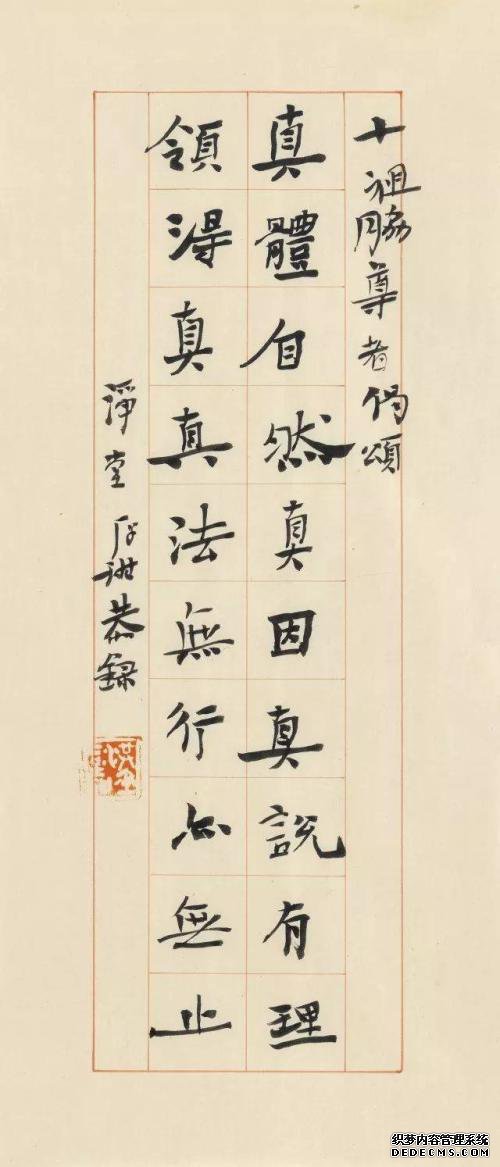 十祖脇尊者偈頌
真體自然真因真說有理
領得真真法無行亦無止
淨堂恭録
织梦内容管理系统
DEDECMS.COM